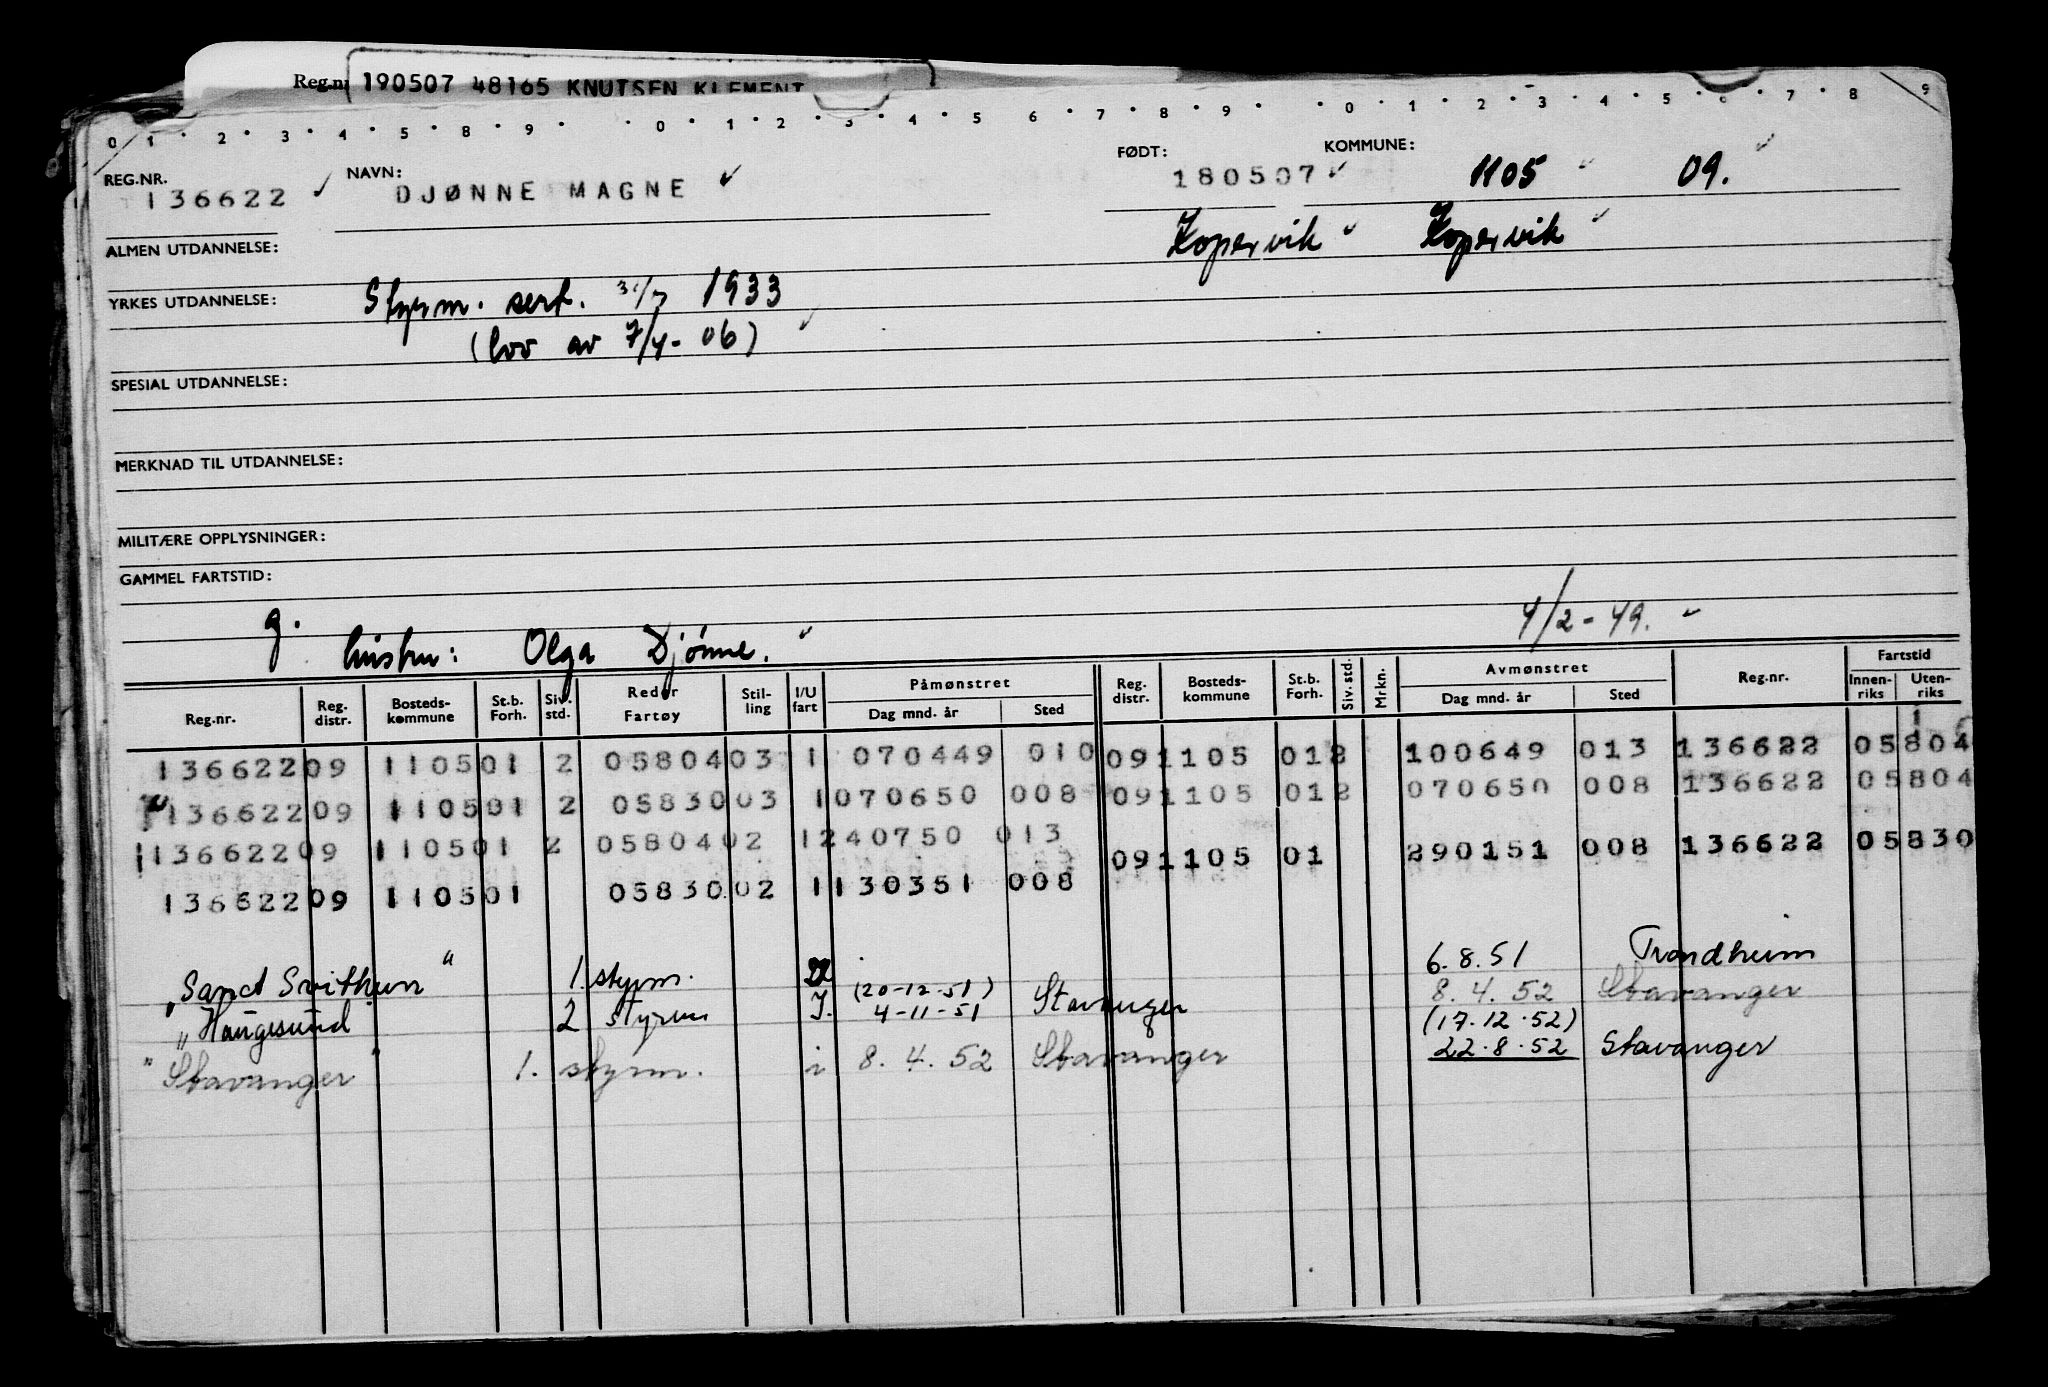 Reg.nr 190507 48165 KNUTSEN KLEMENT
0 1 · 2 · 3 · 4 · 5 · 8 · 9 · · 0 · 1 · 2 · 3 · 4 · 5 6 · 7 · 8 · 9 · · 0 · 1 · 2 · 3 · 4 · 5 · 6 · 7 · 8 9
REG.NR. 136622 ✓ NAVN: DJØNNE MAGNE ✓ FØDT: 180507 ✓ KOMMUNE: 1105 09.
ALMEN UTDANNELSE: Kopervik Kopervik
YRKES UTDANNELSE: Styrm. sert. 31/7 1933
(lov av 7/4-06)
SPESIAL UTDANNELSE:
MERKNAD TIL UTDANNELSE:
MILITÆRE OPPLYSNINGER:
GAMMEL FARTSTID:
g. 4/2-49.
hustru: Olga Djønne.
Reg.nr. Reg. distr. Bosteds-kommune St.b. Forh. Siv. std. Reder Fartøy Stil-ling I/U fart Påmønstret Dag mnd. år Sted Reg. distr. Bosteds-kommune St.b. Forh. Siv. std. Mrkn. Avmønstret Dag mnd. år Sted Reg.nr. Fartstid Innen-riks Uten-riks
136622 09 1105 01 2 05804 03 1 070449 010 09 1105 01 2 100649 013 136622 05804
136622 09 1105 01 2 05830 03 1 070650 008 09 1105 01 2 070650 008 136622 05804
136622 09 1105 01 2 05804 02 1 240750 013 09 1105 01 290151 008 136622 05830
136622 09 1105 01 05830 02 1 130351 008
"Sanct Svithun" 1. styrm. 6.8.51 Trondheim
"Haugesund 2 styrm I. (20-12-51) 4-11-51 Stavanger 8.4.52 Stavanger
"Stavanger" 1. styrm. i 8.4.52 Stavanger (17.12.52) 22.8.52 Stavanger